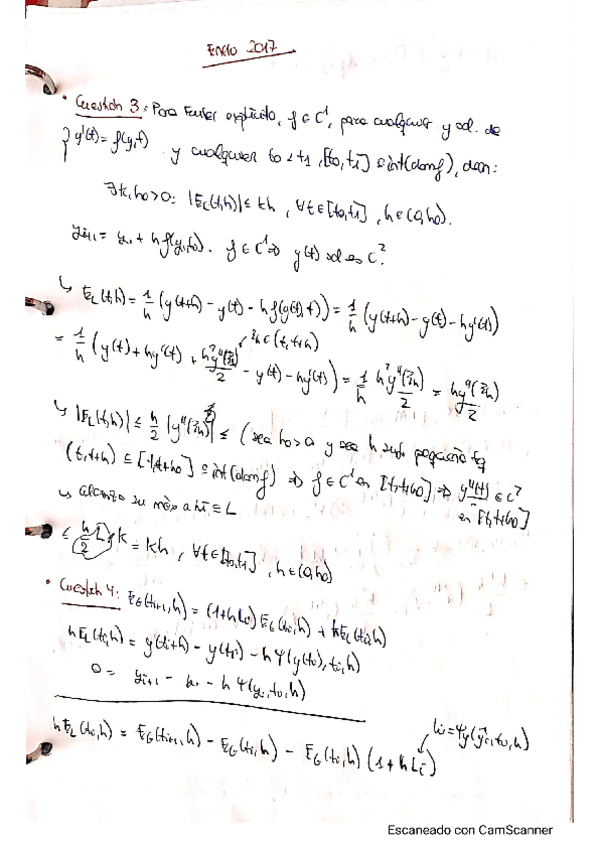 Enero 2017
• Cuestión 3: Para Euler explícito, f ∈ C¹, para cualquier y sol. de
{ y'(t) = f(y,t) y cualquier t0 < t1, [t0,t1] ⊆ int(dom f), dem:
∃ k, h0 > 0: |E_L(t,h)| ≤ kh, ∀t ∈ [t0,t1], h ∈ (0,h0).
y_{i+1} = y_i + h f(y_i,t_i). f ∈ C¹ ⇒ y(t) sol es C².
↳ E_L(t,h) = 1/h (y(t+h) - y(t) - h f(y(t),t)) = 1/h (y(t+h) - y(t) - hy'(t))
ξh ∈ (t,t+h)
= 1/h (y(t) + hy'(t) + h²y''(ξh)/2 - y(t) - hy'(t)) = 1/h h²y''(ξh)/2 = hy''(ξh)/2
↳ |E_L(t,h)| ≤ h/2 |y''(ξh)| ≤ (sea h0 > 0 y sea h suf. pequeño tq
(t,t+h) ⊆ [t,t+h0] ⊆ int(dom f) ⇒ f ∈ C¹ en [t,t+h0] ⇒ y''(t) ∈ C²
en [t,t+h0]
↳ alcanza su máx ahí ≡ L
≤ h/2 L, k = kh, ∀t ∈ [t0,t1], h ∈ (0,h0)
• Cuestión 4: E_G(t_{i+1},h) = (1+hL_i) E_G(t_i,h) + hE_L(t_i,h)
hE_L(t_i,h) = y(t_i+h) - y(t_i) - hΨ(y(t_i),t_i,h)
0 = y_{i+1} - y_i - hΨ(y_i,t_i,h)
L_i = Ψy(ỹ_i,t_i,h)
hE_L(t_i,h) = E_G(t_{i+1},h) - E_G(t_i,h) - E_G(t_i,h) (1+hL_i)
Escaneado con CamScanner